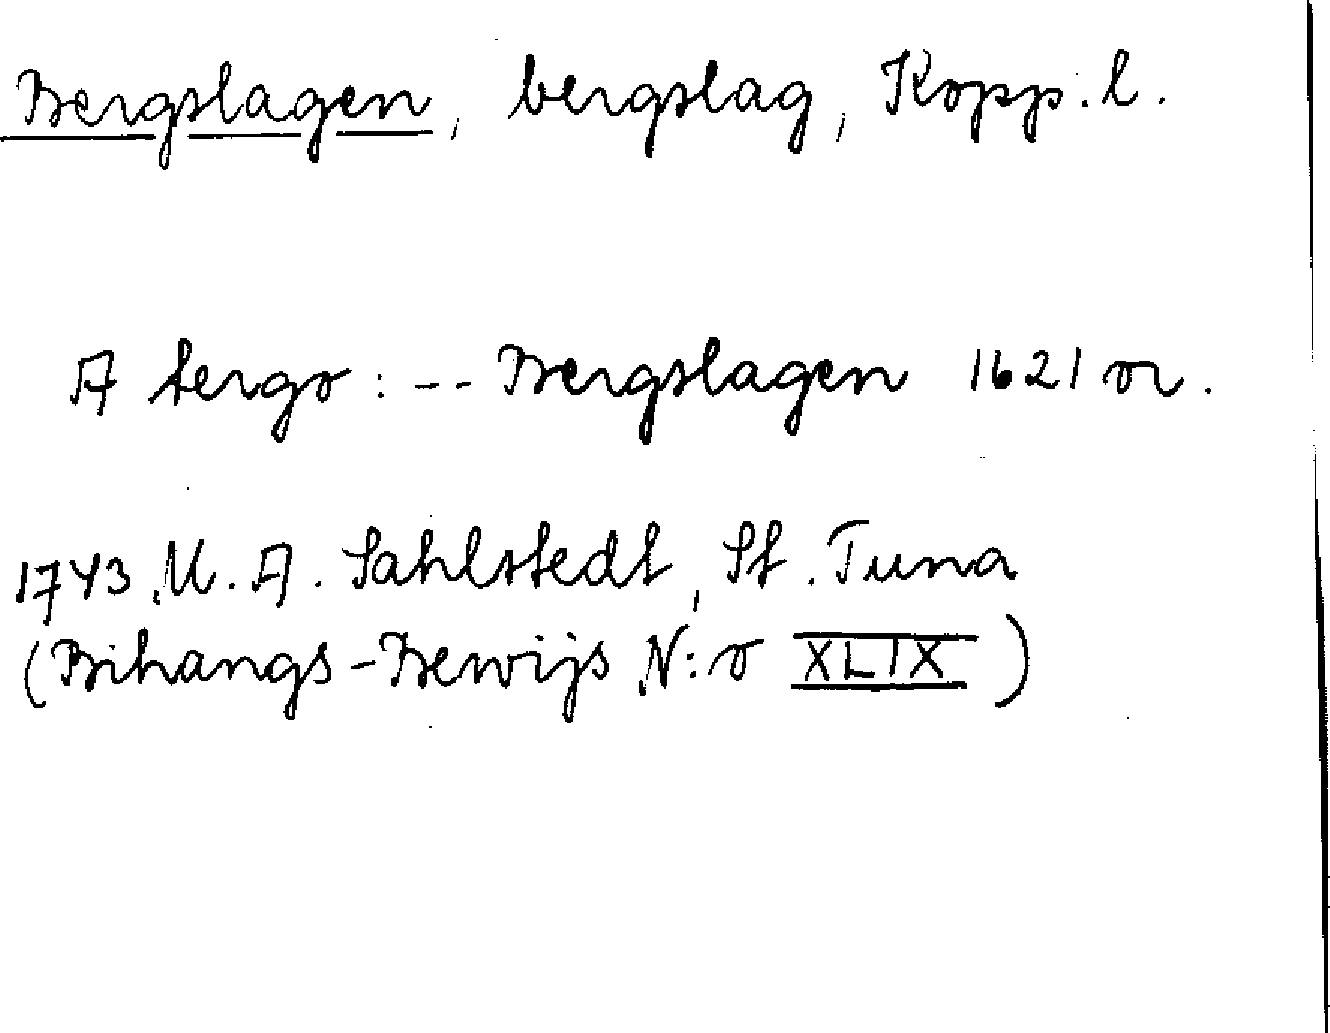 Bergslagen, bergslag, Kopp. l.
A tergo: -- Bergslagen 1621 or.
1743 U. A. Sahlstedt, St. Tuna
(Bihangs-Bewijs N:o XLIX)